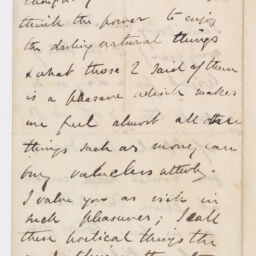 think the power to enjoy
the darling natural things
& what those I said of them
is a pleasure which makes
me feel almost all other
things such as money can
buy valueless utterly.
I value you as rich in
such pleasures; I call
these poetical things the